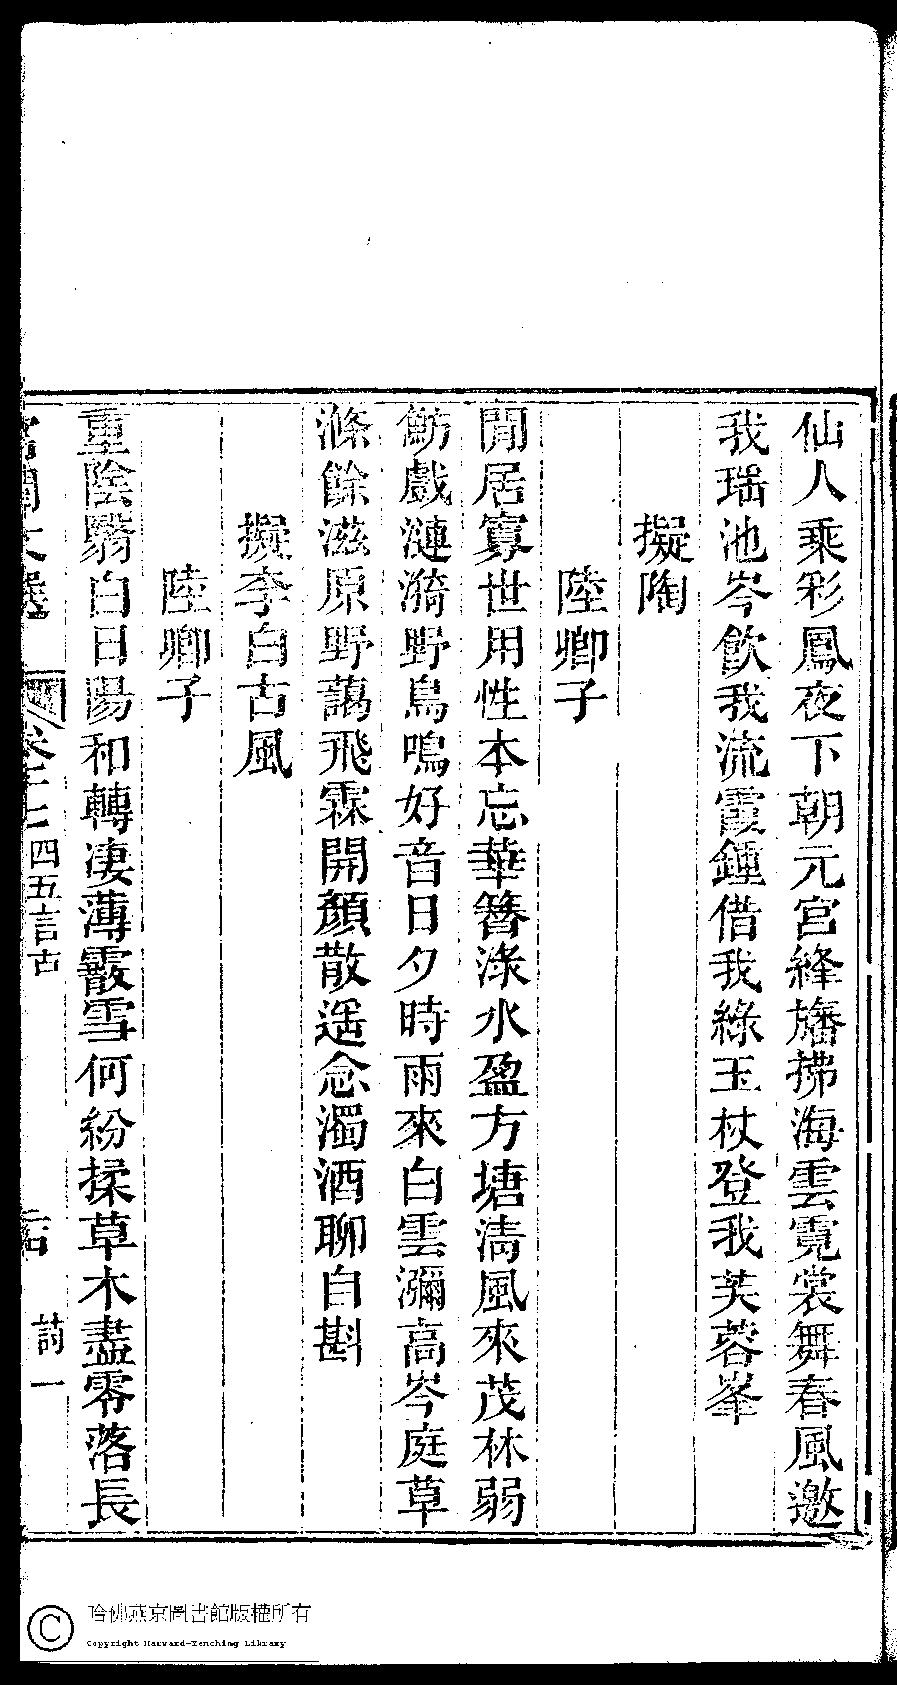 仙人乘彩鳳夜下朝元宮絳旛拂海雲霓裳舞春風邀
我瑞池岑飲我流霞鍾借我綠玉杖登我芙蓉峯
擬陶
陸卿子
閒居寡世用性本忘華簪淥水盈方塘淸風來茂林弱
魴戲漣漪野鳥鳴好音日夕時雨來白雲瀰高岑庭草
滌餘滋原野藹飛霖開顏散遥念濁酒聊自斟
擬李白古風
陸卿子
重陰翳白日陽和轉凄薄霰雪何紛揉草木盡零落長
宮閨文選
卷十七
四五言古
詩一
哈佛燕京圖書館版權所有
Copyright Harvard-Yenching Library